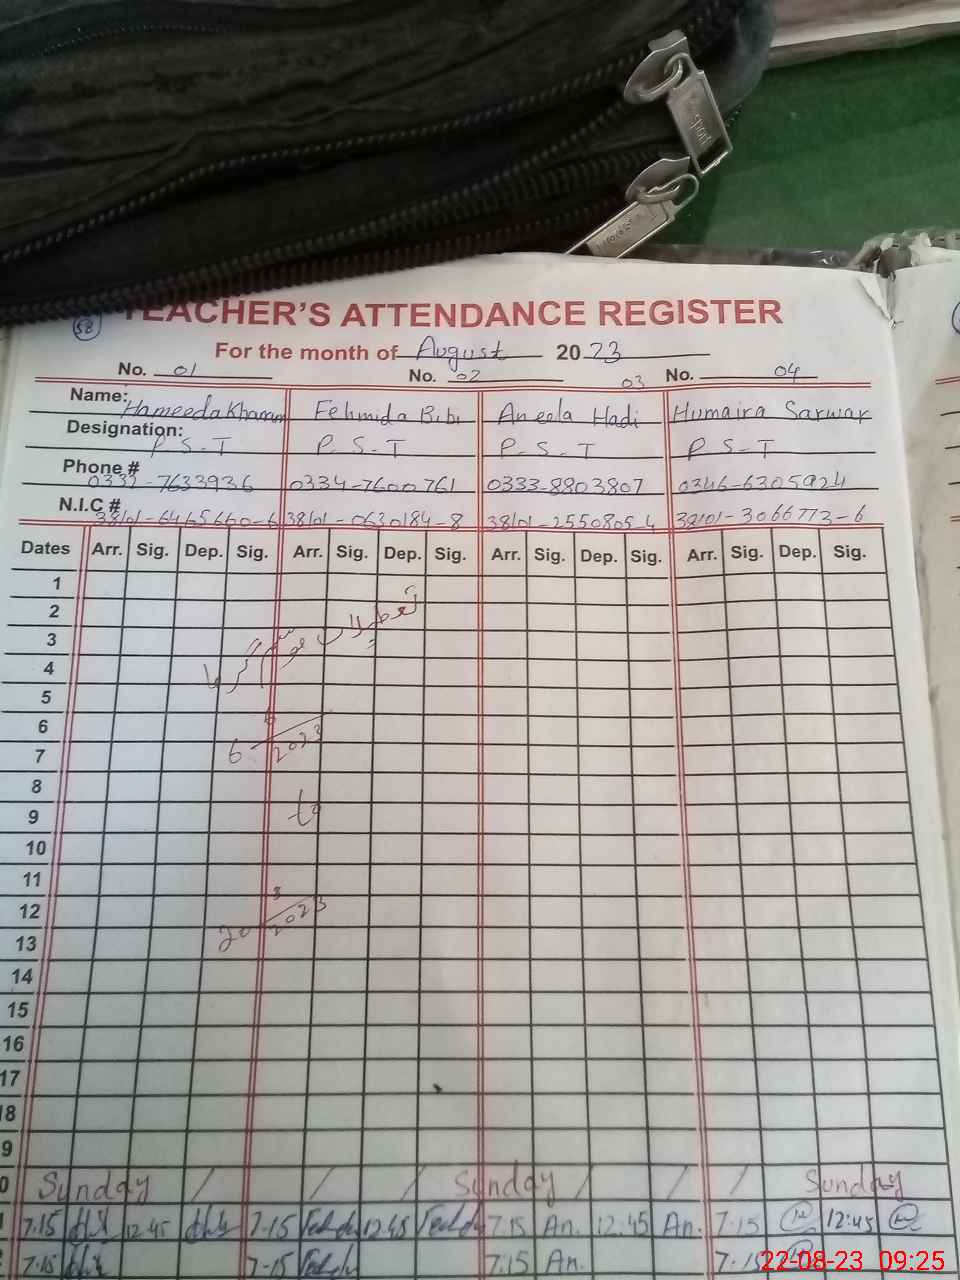 58
TEACHER'S ATTENDANCE REGISTER
For the month of August 2023
No. 01 No. 02 03 No. 04
Name: Hameeda Khanum Fehmida Bibi Aneela Hadi Humaira Sarwar
Designation: P.S.T P.S.T P.S.T P.S.T
Phone # 0332-7633936 0334-7600761 0333-8803807 0346-6305924
N.I.C # 38101-0630184-8 38101-2550805-4
Dates Arr. Sig. Dep. Sig. Arr. Sig. Dep. Sig. Arr. Sig. Dep. Sig. Arr. Sig. Dep. Sig.
1
2
تعطیلات موسم گرما
3
4
5
6
6 6/2023
7
8
to
9
10
11
12
20 8/2023
13
14
15
16
17
18
9
0 Sunday / / / Sunday / / / Sunday
1 7.15 12.45 7-15 12.45 7.15 An. 12:45 An. 7-15 12:45
7.15 7-15 7.15 An. 7-15
22-08-23 09:25